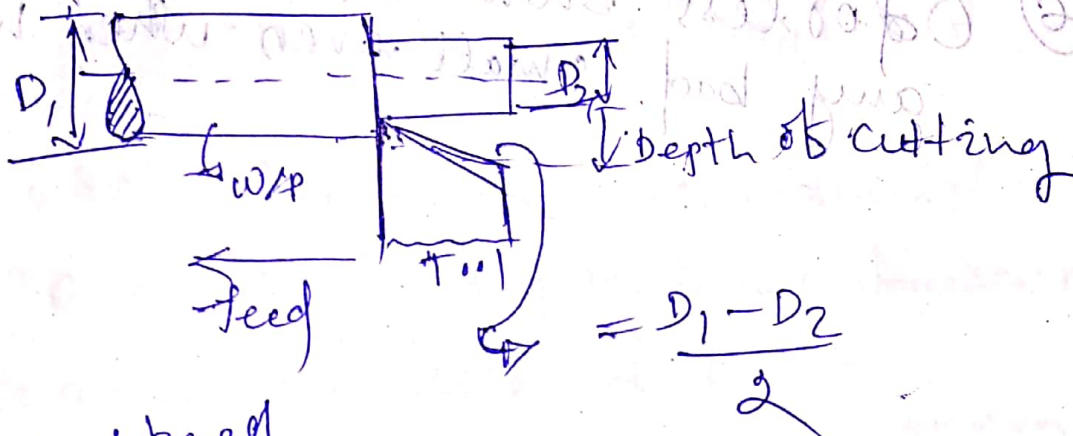 D1
D2
Depth of cutting
W/P
Tool
feed
= D1 - D2
2